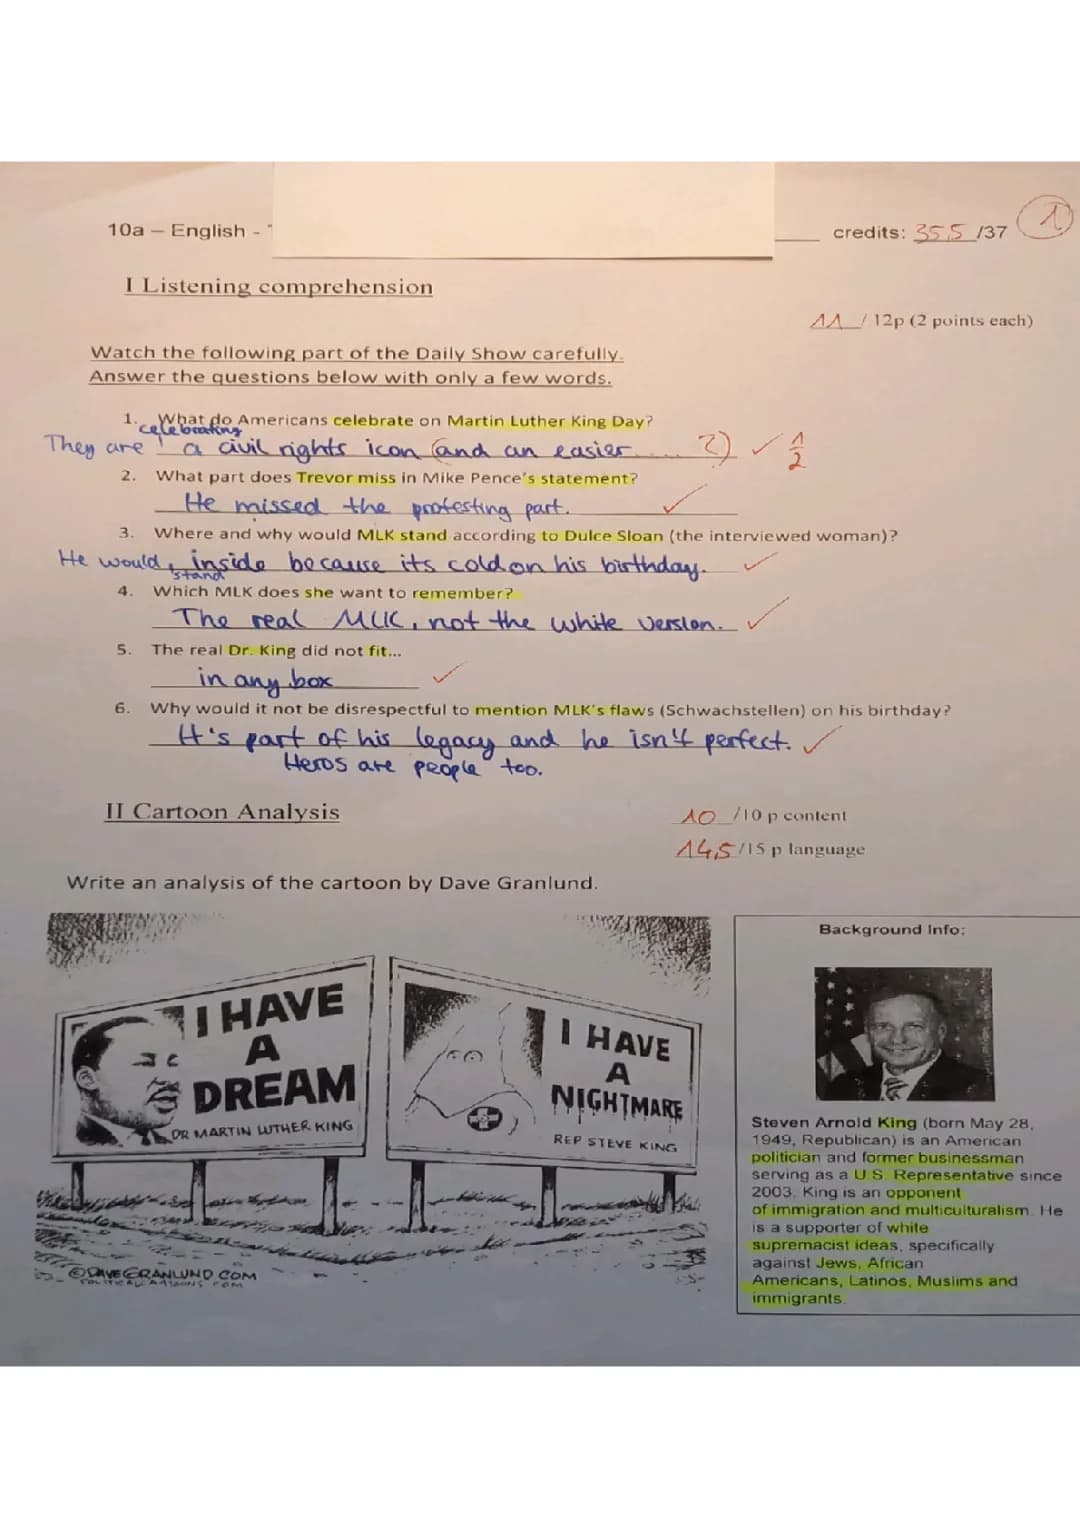 10a – English -
credits: 35,5 /37
1
I Listening comprehension
11 / 12p (2 points each)
Watch the following part of the Daily Show carefully.
Answer the questions below with only a few words.
1. What do Americans celebrate on Martin Luther King Day?
celebrating
They are a civil rights icon (and an easier ..... ?) ✓ 1/2
2. What part does Trevor miss in Mike Pence's statement?
He missed the protesting part. ✓
3. Where and why would MLK stand according to Dulce Sloan (the interviewed woman)?
He would inside because its cold on his birthday. ✓
stand
4. Which MLK does she want to remember?
The real MLK, not the white version. ✓
5. The real Dr. King did not fit...
in any box ✓
6. Why would it not be disrespectful to mention MLK's flaws (Schwachstellen) on his birthday?
It's part of his legacy and he isn't perfect. ✓
Heros are people too.
II Cartoon Analysis
10 /10 p content
14,5/15 p language
Write an analysis of the cartoon by Dave Granlund.
I HAVE
A
DREAM
DR MARTIN LUTHER KING
I HAVE
A
NIGHTMARE
REP STEVE KING
©DAVEGRANLUND.COM
Background Info:
Steven Arnold King (born May 28,
1949, Republican) is an American
politician and former businessman
serving as a U.S. Representative since
2003. King is an opponent
of immigration and multiculturalism. He
is a supporter of white
supremacist ideas, specifically
against Jews, African
Americans, Latinos, Muslims and
immigrants.